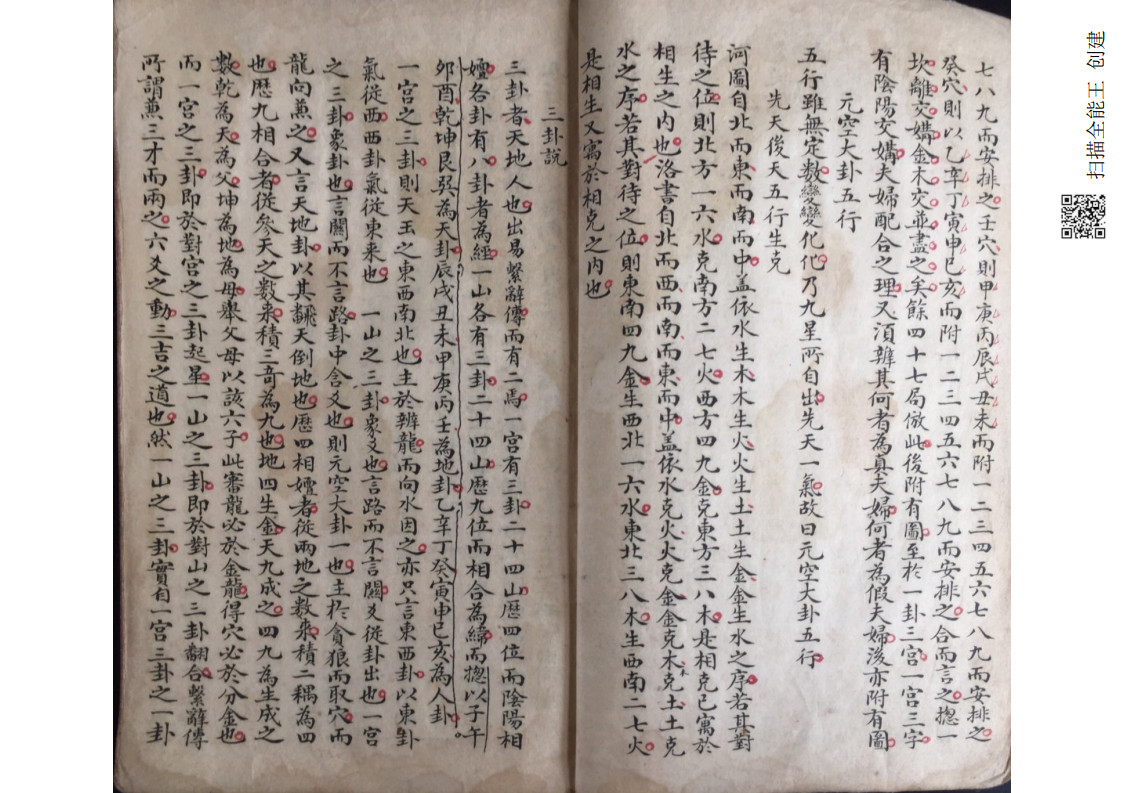 七八九而安排之壬穴則甲庚丙辰戌丑未而附一二三四五六七八九而安排之
癸穴則以乙辛丁寅申巳亥而附一二三四五六七八九而安排之合而言之揔一
坎離交媾金木交並盡之矣餘四十七局倣此後附有圖至於一卦三宮一宮三字
有陰陽交媾夫婦配合之理又須辨其何者為真夫婦何者為假夫婦後亦附有圖
元空大卦五行
五行雖無定數變變化化乃九星所自出先天一氣故曰元空大卦五行
先天後天五行生克
河圖自北而東而南而中盖依水生木木生火火生土土生金金生水之序若其對
待之位則北方一六水克南方二七火西方四九金克東方三八木是相克已寓於
相生之內也洛書自北而西而南而東而中盖依水克火火克金金克木木克土土克
水之序若其對待之位則東南四九金生西北一六水東北三八木生西南二七火
是相生又寓於相克之內也
三卦說
三卦者天地人也出易繫辭傳而有二焉一宮有三卦二十四山歷四位而陰陽相
嬗各卦有八卦者為經一山各有三卦二十四山歷九位而相合為緯而揔以子午
夘酉乾坤艮巽為天卦辰戌丑未甲庚丙壬為地卦乙辛丁癸寅申巳亥為人卦
一宮之三卦則天玉之東西南北也主於辨龍而向水因之亦只言東西卦以東卦
氣從西西卦氣從東来也 一山之三卦象爻也言路而不言關爻從卦出也一宮
之三卦象卦也言關而不言路卦中含爻也則元空大卦一也主於貪狼而取穴而
龍向蕉之又言天地卦以其飜天倒地也歷四相嬗者從兩地之数来積二耦為四
也歷九相合者從參天之數来積三奇為九也地四生金天九成之四九為生成之
數乾為天為父坤為地為母舉父母以該六子此審龍必於金龍得穴必於分金也
而一宮之三卦即於對宮之三卦起星一山之三卦即於對山之三卦翻合繫辭傳
所謂蕉三才而兩之六爻之動三吉之道也然一山之三卦實自一宮三卦之一卦
扫描全能王 创建